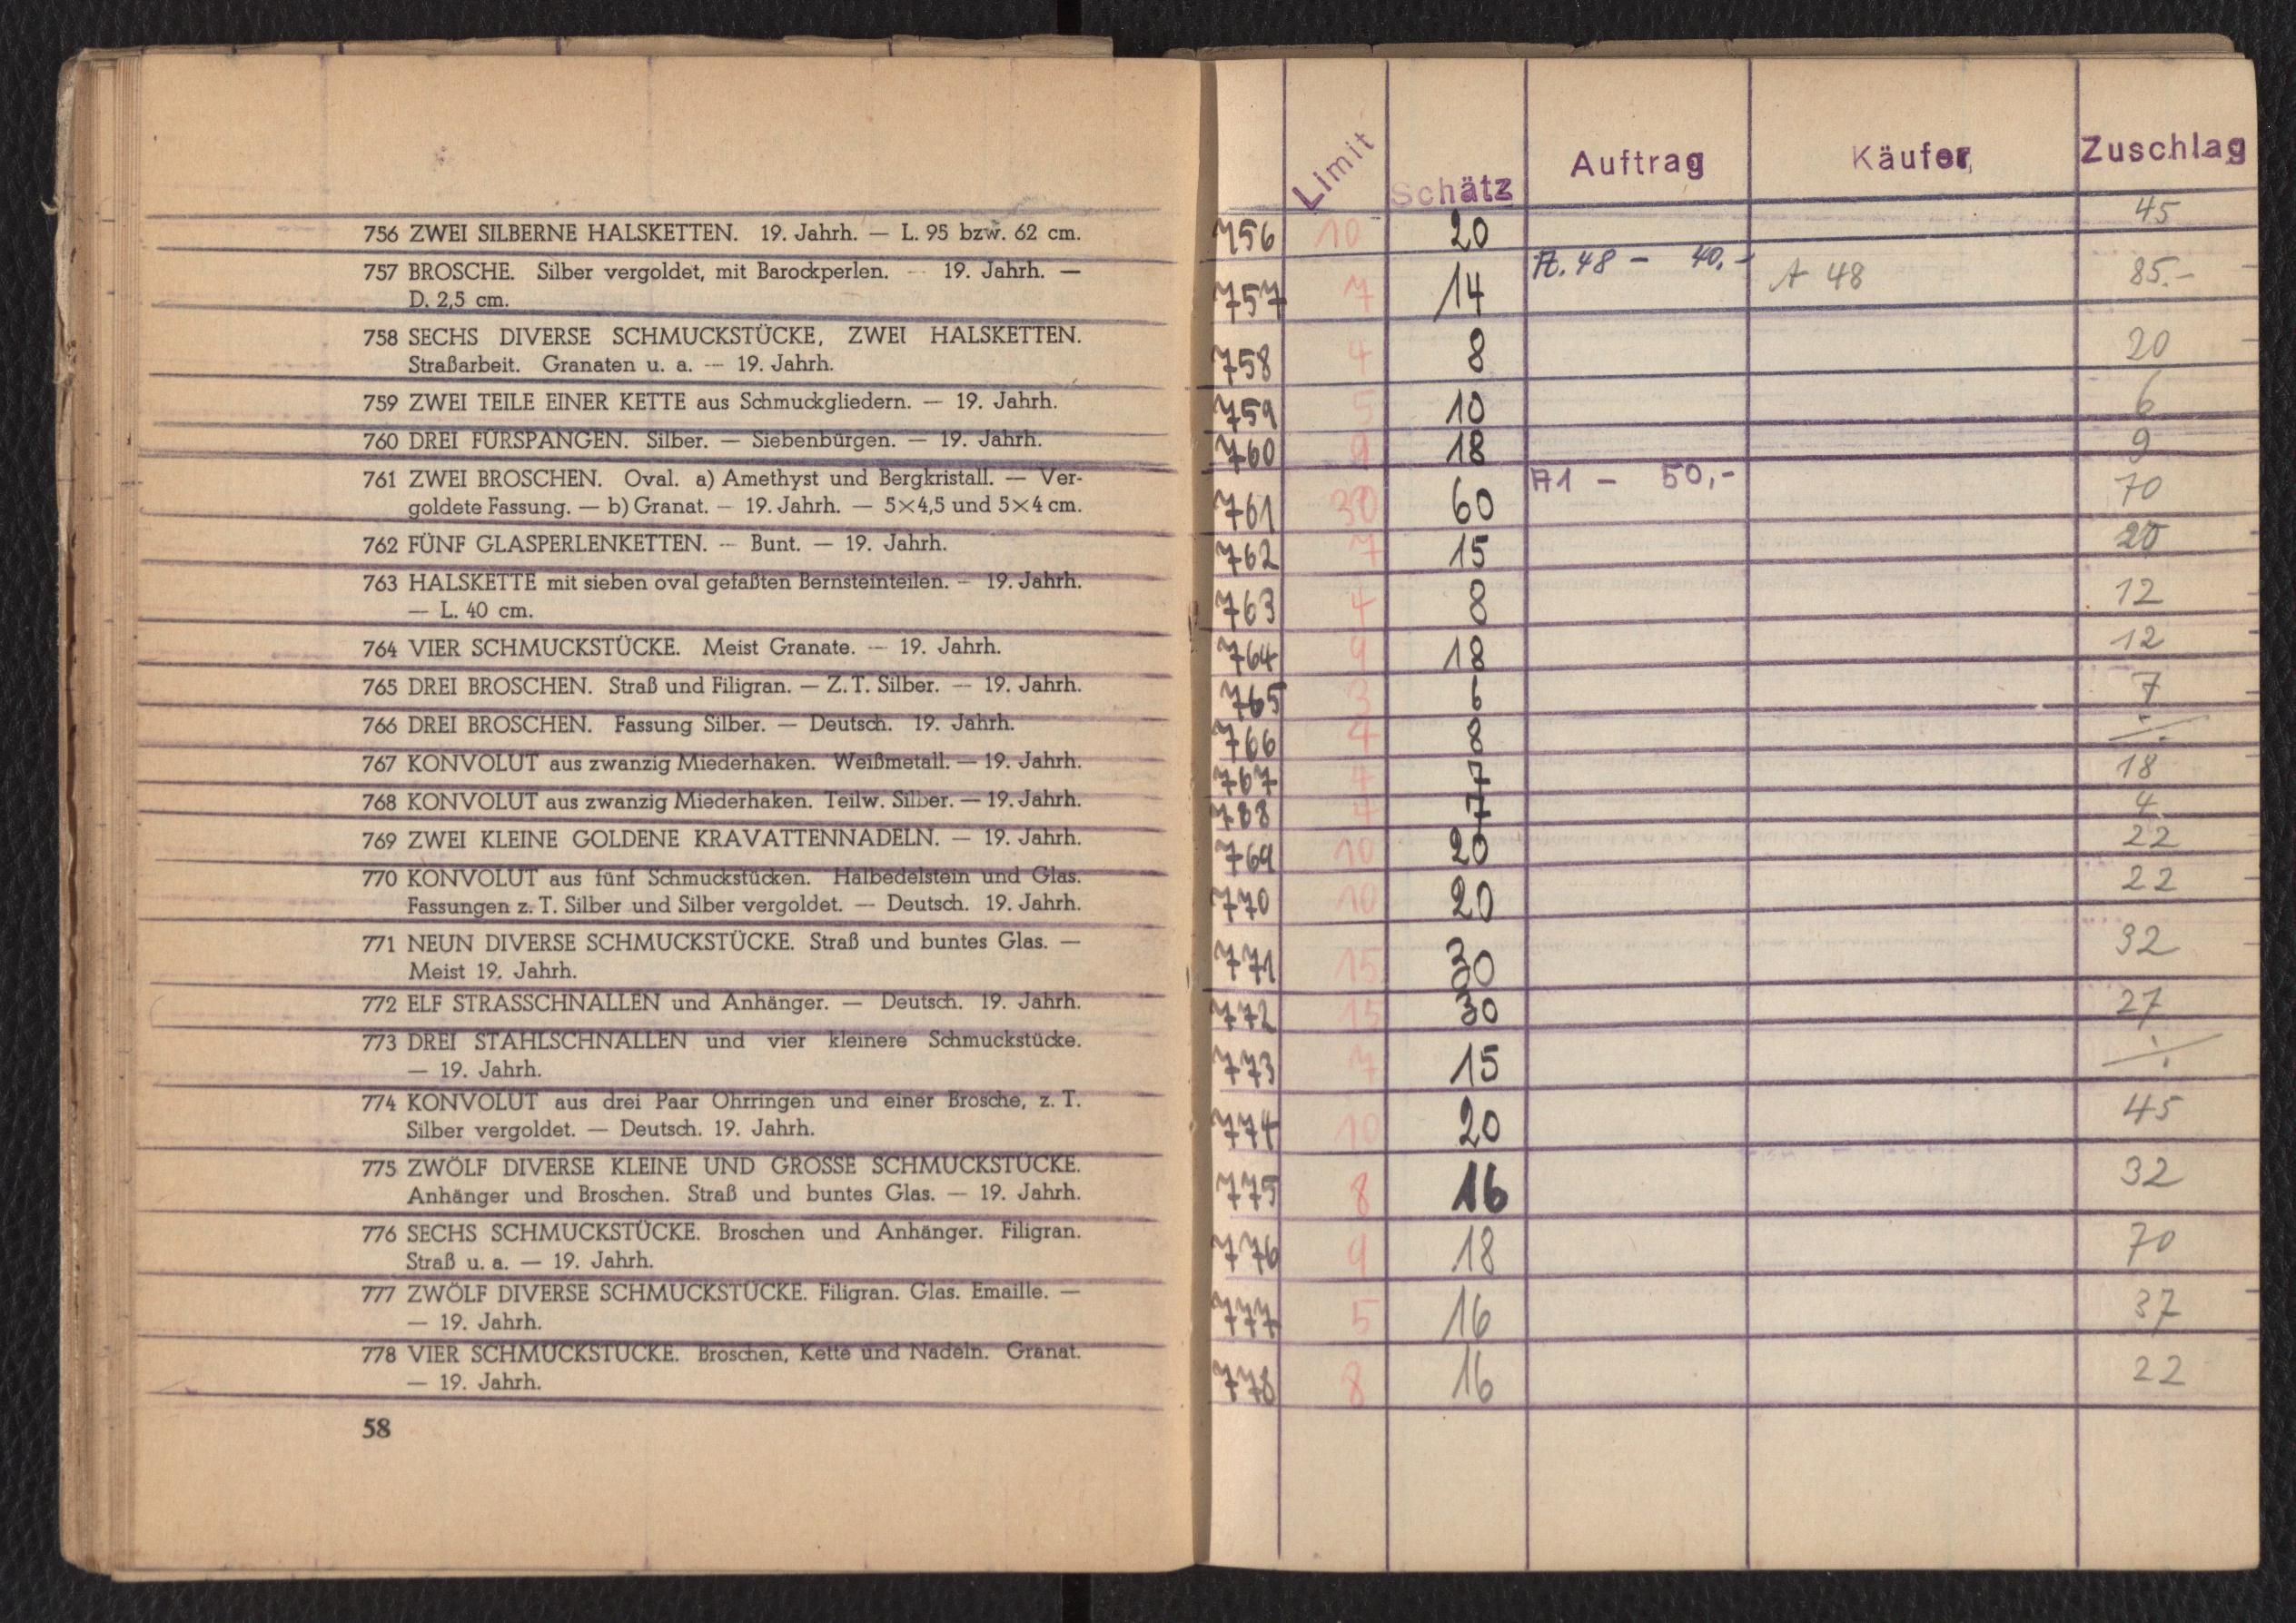 756 ZWEI SILBERNE HALSKETTEN. 19. Jahrh. — L. 95 bzw. 62 cm.
757 BROSCHE. Silber vergoldet, mit Barockperlen. — 19. Jahrh. —
D. 2,5 cm.
758 SECHS DIVERSE SCHMUCKSTÜCKE, ZWEI HALSKETTEN.
Straßarbeit. Granaten u. a. — 19. Jahrh.
759 ZWEI TEILE EINER KETTE aus Schmuckgliedern. — 19. Jahrh.
760 DREI FÜRSPANGEN. Silber. — Siebenbürgen. — 19. Jahrh.
761 ZWEI BROSCHEN. Oval. a) Amethyst und Bergkristall. — Ver-
goldete Fassung. — b) Granat. — 19. Jahrh. — 5×4,5 und 5×4 cm.
762 FÜNF GLASPERLENKETTEN. — Bunt. — 19. Jahrh.
763 HALSKETTE mit sieben oval gefaßten Bernsteinteilen. — 19. Jahrh.
— L. 40 cm.
764 VIER SCHMUCKSTÜCKE. Meist Granate. — 19. Jahrh.
765 DREI BROSCHEN. Straß und Filigran. — Z. T. Silber. — 19. Jahrh.
766 DREI BROSCHEN. Fassung Silber. — Deutsch. 19. Jahrh.
767 KONVOLUT aus zwanzig Miederhaken. Weißmetall. — 19. Jahrh.
768 KONVOLUT aus zwanzig Miederhaken. Teilw. Silber. — 19. Jahrh.
769 ZWEI KLEINE GOLDENE KRAVATTENNADELN. — 19. Jahrh.
770 KONVOLUT aus fünf Schmuckstücken. Halbedelstein und Glas.
Fassungen z. T. Silber und Silber vergoldet. — Deutsch. 19. Jahrh.
771 NEUN DIVERSE SCHMUCKSTÜCKE. Straß und buntes Glas. —
Meist 19. Jahrh.
772 ELF STRASSCHNALLEN und Anhänger. — Deutsch. 19. Jahrh.
773 DREI STAHLSCHNALLEN und vier kleinere Schmuckstücke.
— 19. Jahrh.
774 KONVOLUT aus drei Paar Ohrringen und einer Brosche, z. T.
Silber vergoldet. — Deutsch. 19. Jahrh.
775 ZWÖLF DIVERSE KLEINE UND GROSSE SCHMUCKSTÜCKE.
Anhänger und Broschen. Straß und buntes Glas. — 19. Jahrh.
776 SECHS SCHMUCKSTÜCKE. Broschen und Anhänger. Filigran.
Straß u. a. — 19. Jahrh.
777 ZWÖLF DIVERSE SCHMUCKSTÜCKE. Filigran. Glas. Emaille. —
— 19. Jahrh.
778 VIER SCHMUCKSTÜCKE. Broschen, Kette und Nadeln. Granat.
— 19. Jahrh.
58
Limit Schätz Auftrag Käufer Zuschlag
756 10 20 45
757 7 14 A. 48 – 40,- A 48 85.-
758 4 8 20
759 5 10 6
760 9 18 9
761 30 60 A1 – 50,- 70
762 7 15 20
763 4 8 12
764 9 18 12
765 3 6 7
766 4 8 ./.
767 4 7 18
788 4 7 4
769 10 20 22
770 10 20 22
771 15 30 32
772 15 30 27
773 7 15 ./.
774 10 20 45
775 8 16 32
776 9 18 70
777 5 16 37
778 8 16 22